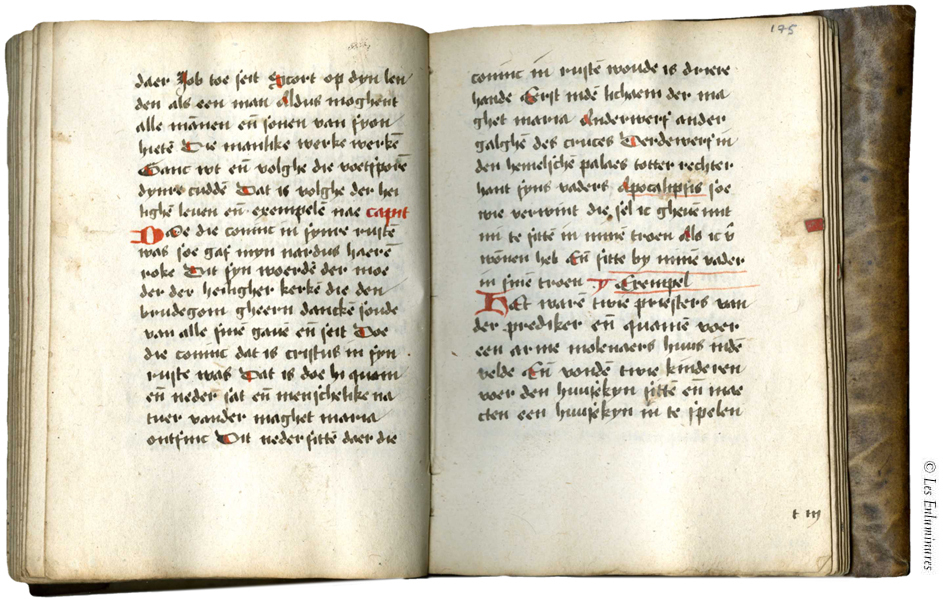 daer Job toe seit Scort op dyn len
den als een man Aldus moghent
alle mānen eñ sonen van syon
hietē Die manlike werke werkē
Ganc wt eñ volghe die voetspotē
dynre cuddē Dat is volghe der hei
lighē leuen eñ exempelē nae capit
DOe die coninc in synre rustē
was soe gaf myn nardus haerē
roke Dit syn woerdē der moe
der der heiligher kerkē die den
brudegom gheern danckē soude
van alle sinē gauē eñ seit Doe
die coninc dat is cristus in syn
ruste was Dat is doe hi quam
eñ neder sat eñ menschelike na
tuer vander maghet maria
ontfinc Dit neder sittē daer die
175
coninc in rustē woude is driere
hande Eerst indē lichaem der ma
ghet maria Anderwers ander
galghē des cruces Derdewers in
den hemelschē palaes totter rechter
hant syns vaders Apocalipsis soe
wie verwint die sel ic gheuē mit
mi te sittē in minē troen Als ic v̄
wonen heb Eñ sitte by minē vader
in sinē troen Exempel
HEt warē twie priesters van
der prediker eñ quamē voer
een arme molenaers huus indē
velde Eñ vondē twie kinderen
voer den huusekyn sittē eñ mae
cten een huusekyn in te spelen
t iij
© Les Enluminures